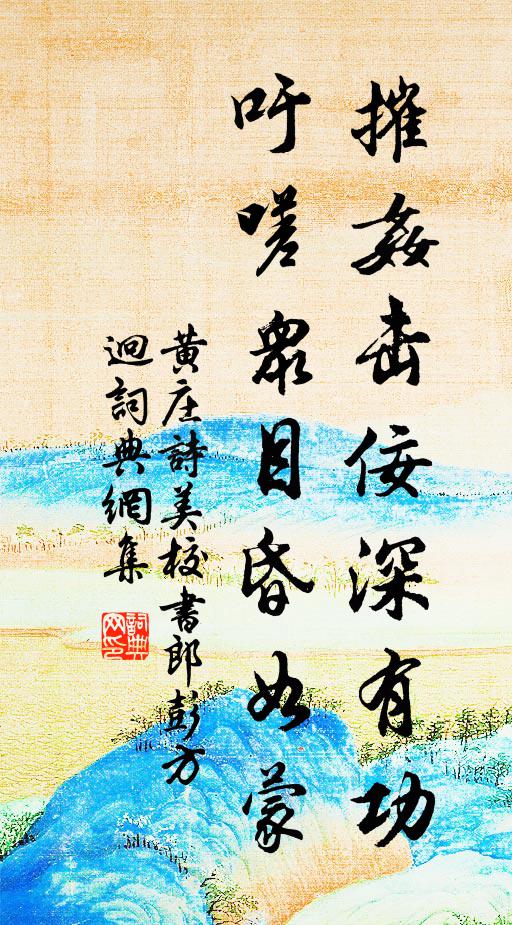 摧姦击佞深有功
吁嗟衆目昏如蒙
黄庄詩美校書郎彭方
迥詞典網集
詞典
网印